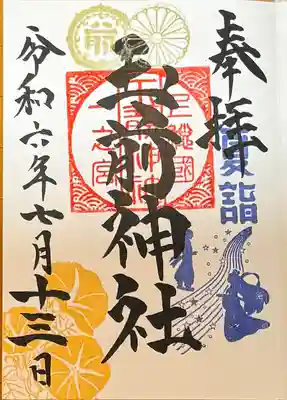 奉拝
夏詣
玉前神社
上總國
一之宮
令和六年七月十三日